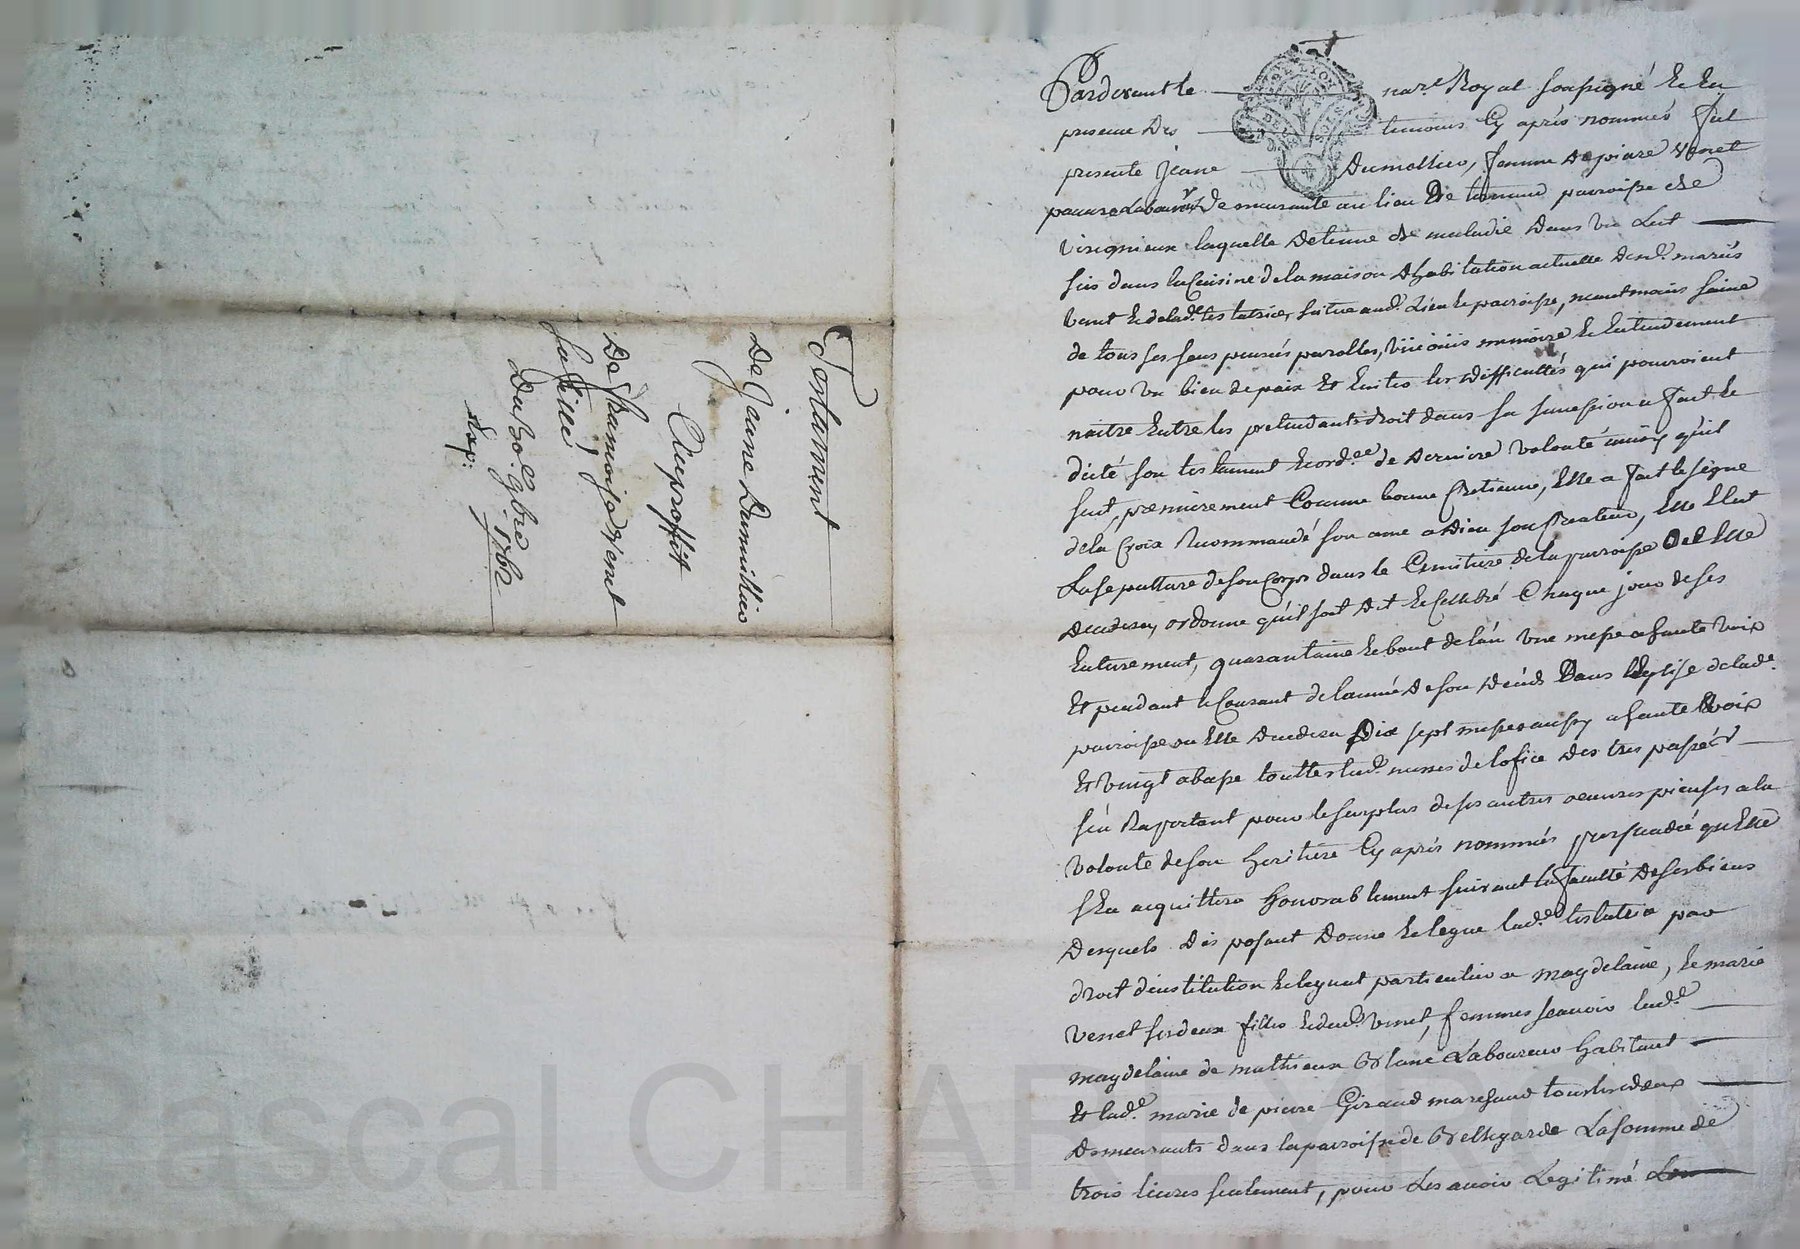 Testament
De Jeanne Dumollier
Au proffit
De françoise venet
sa fille,
Du 30e. 9bre 1762
Exp:
Pardevant le nore. Royal soussigné Et En
presence Des temoins Cy aprés nommés fut
presente Jeane Dumollier, femme De piere Venet
laboureur Demeurante au lieu De paroisse de
Virignieux laquelle detenue de maladie Dans un Lit
sis dans la Cuisine de la maison D'habitation actuelle desd. mariés
Venet Et de lad.e testatrice, située aud. Lieu Et paroisse, neantmoins saine
de tous ses sens pensés parolles, vüe ouie memoire Et Entendement
pour Un bien de paix Et Eviter les Difficultés qui pourroient
naitre Entre les pretendants droit dans sa succession a fait Et
dicté son testament Et ord.ce de Derniere volonté ainsy qu'il
suit, premierement Comme bonne Chretienne, Elle a fait le signe
de la Croix Recommandé son ame a Dieu son Createur, Elle Elut
La sepulture de son Corps dans le Cimitiere de la paroisse ou Elle
Decedera, ordonne qu'il soit Dit Et Cellebré Chaque jour de ses
Enterement, quarantaine Et bout de l'an Une messe a haute voix
Et pendant le Courant de l'année De son Décés Dans l'Eglise de lad.e
paroisse ou Elle Decedera Dix sept messes aussy a haute voix
Et Vingt a basse touttes lesd. messes de l'ofice Des tres passés
s'en Raportant pour le surplus de ses autres oeuvres pieuses a la
volonté de son heritiere Cy aprés nommée persuadée qu'Elle
s'En acquittera honorablement suivant la faculté De ses biens
Desquels Disposant Donne Et legue lad.e testatrice par
droit d'institution Et legat particulier a magdelaine, Et marie
Venet ses deux filles Et dud. Venet, femmes sçavoir lad.e
magdelaine de mathieux Laboureur habitant
Et lad.e marie de pierre Giraud marchand tous les deux
Demeurants dans la paroisse de Bellegarde La somme de
trois livres seulement, pour Les avoir Legitimé
Pascal CHAREYRON